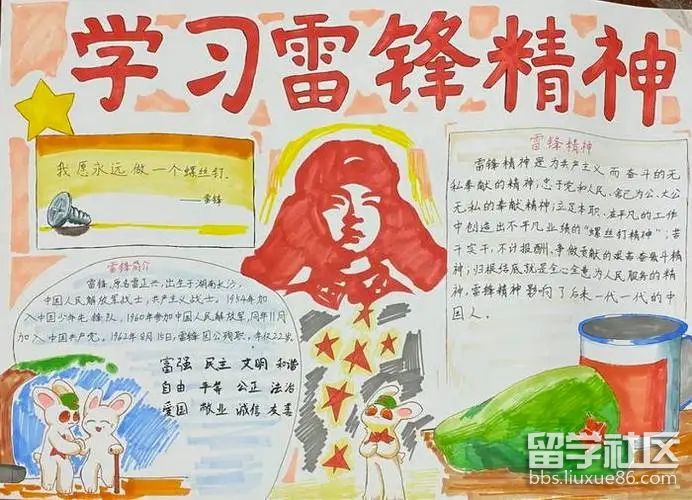 学习雷锋精神
我愿永远做一个螺丝钉.
——雷锋
雷锋简介
雷锋,原名雷正兴,出生于湖南长沙,
中国人民解放军战士,共产主义战士。1954年加
入中国少年先锋队,1960年参加中国人民解放军,同年11月
加入中国共产党。1962年8月15日,雷锋因公殉职,年仅22岁
富强 民主 文明 和谐
自由 平等 公正 法治
爱国 敬业 诚信 友善
雷锋精神
雷锋精神是为共产主义而奋斗的无
私奉献的精神;忠于党和人民、舍己为公、大公
无私的奉献精神;立足本职、在平凡的工作
中创造出不平凡业绩的“螺丝钉精神”;苦
干实干、不计报酬、争做贡献的艰苦奋斗精
神;归根结底就是全心全意为人民服务的精
神,雷锋精神影响了后来一代一代的中
国人。
留学社区
bbs.liuxue86.com